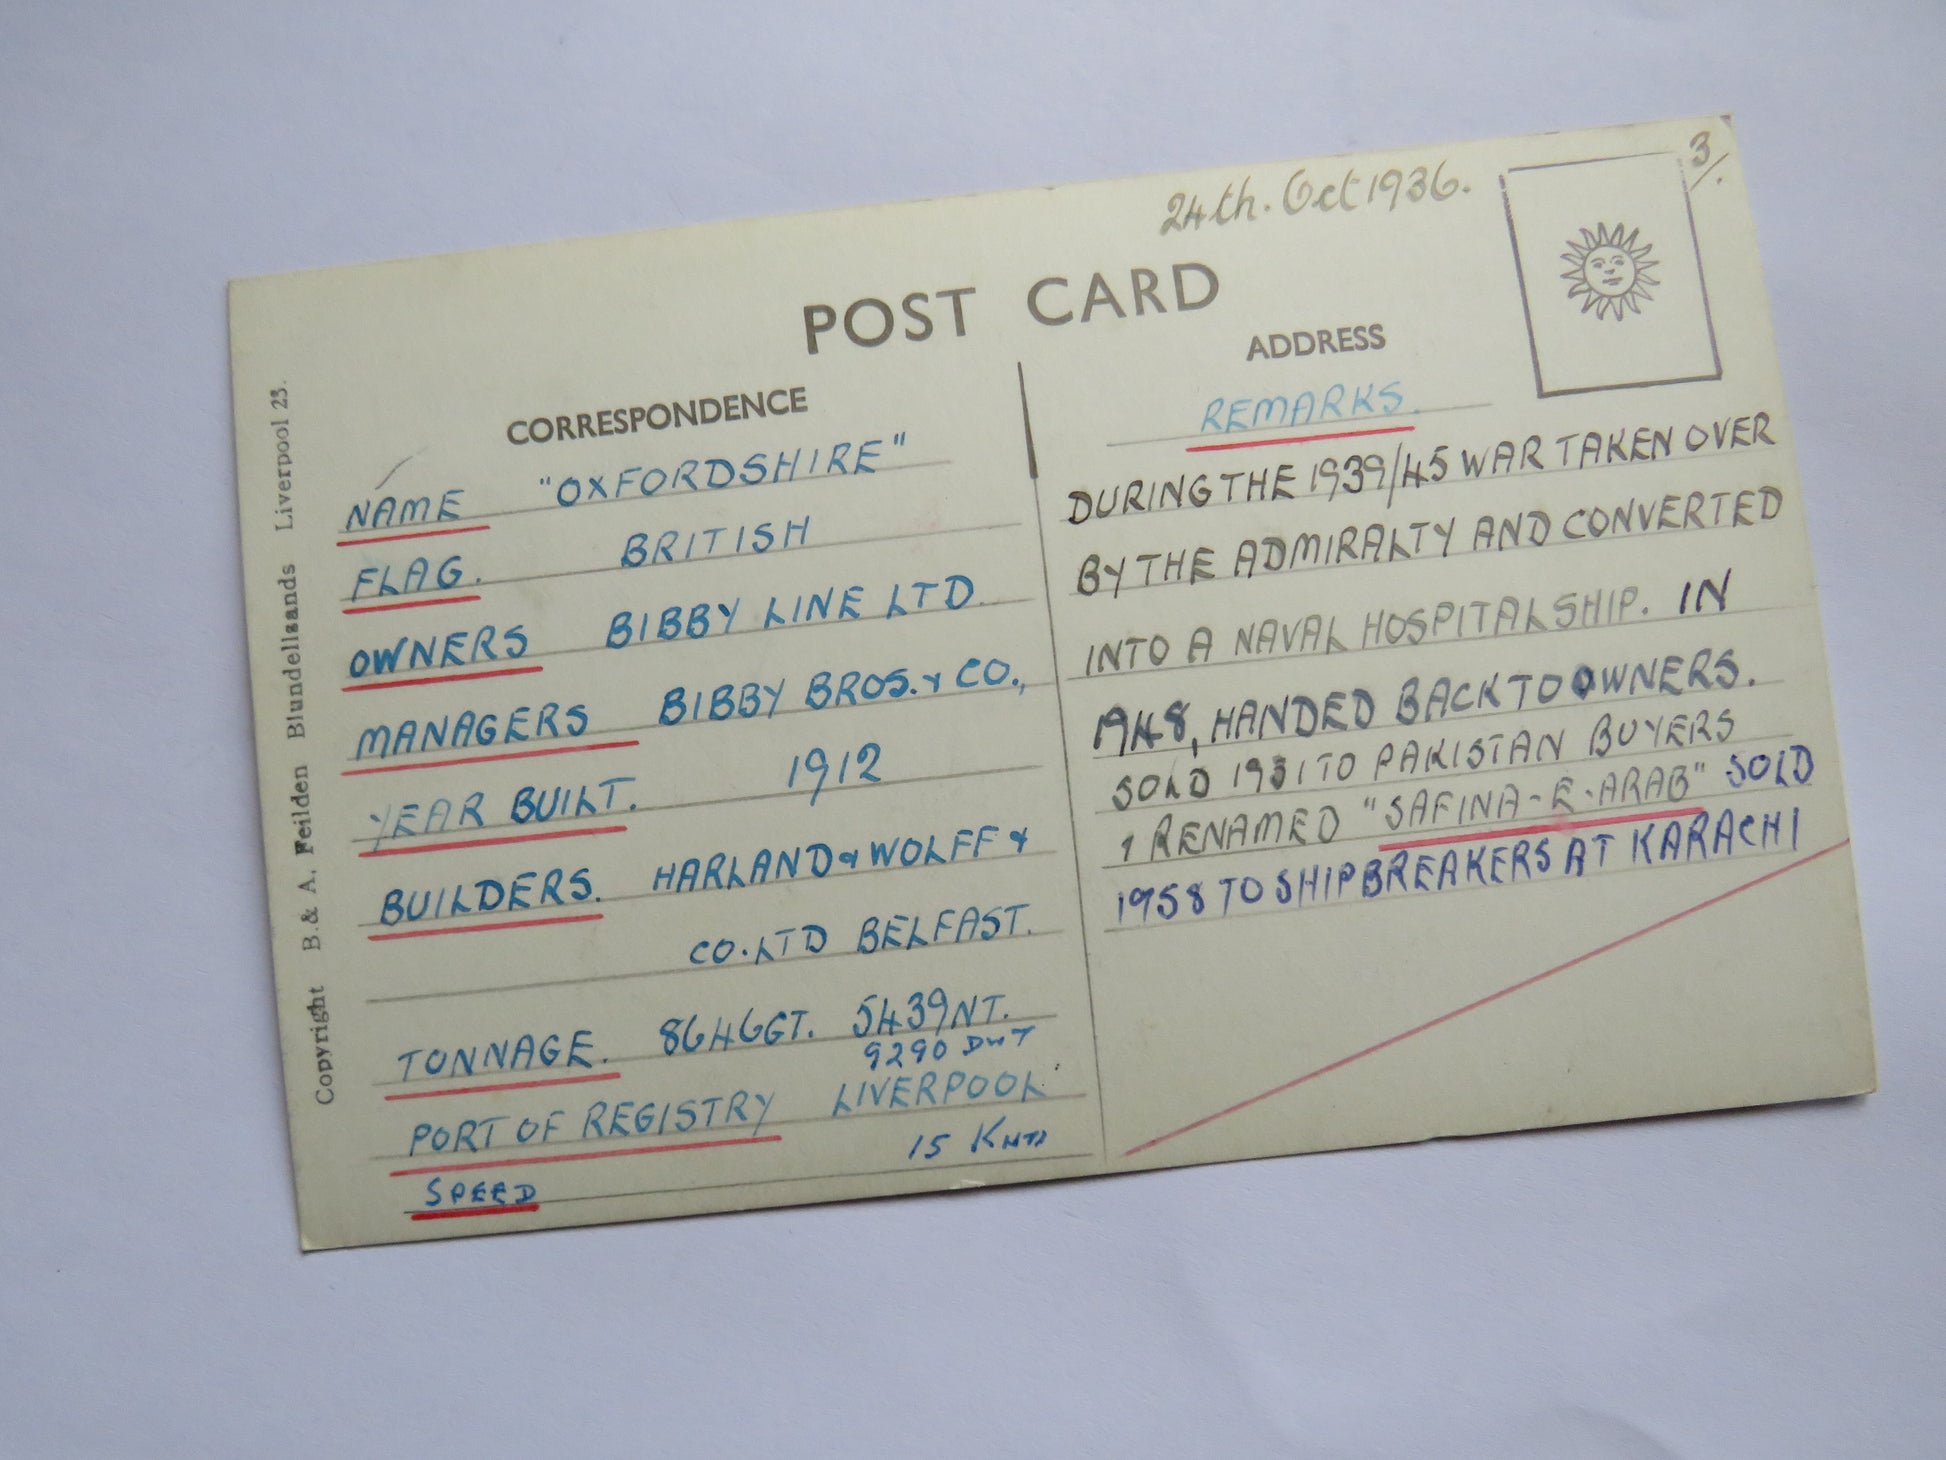 24th. Oct 1936.
3/.
POST CARD
CORRESPONDENCE
NAME "OXFORDSHIRE"
FLAG. BRITISH
OWNERS BIBBY LINE LTD.
MANAGERS BIBBY BROS. & CO.,
YEAR BUILT. 1912
BUILDERS. HARLAND & WOLFF &
CO. LTD BELFAST.
TONNAGE. 8646GT. 5439NT.
9290 DWT
PORT OF REGISTRY LIVERPOOL.
15 Knts
SPEED
ADDRESS
REMARKS.
DURING THE 1939/45 WAR TAKEN OVER
BY THE ADMIRALTY AND CONVERTED
INTO A NAVAL HOSPITAL SHIP. IN
1948, HANDED BACK TO OWNERS.
SOLD 1951 TO PAKISTAN BUYERS
& RENAMED "SAFINA-E-ARAB" SOLD
1958 TO SHIPBREAKERS AT KARACHI
Copyright B. & A. Feilden Blundellsands Liverpool 23.